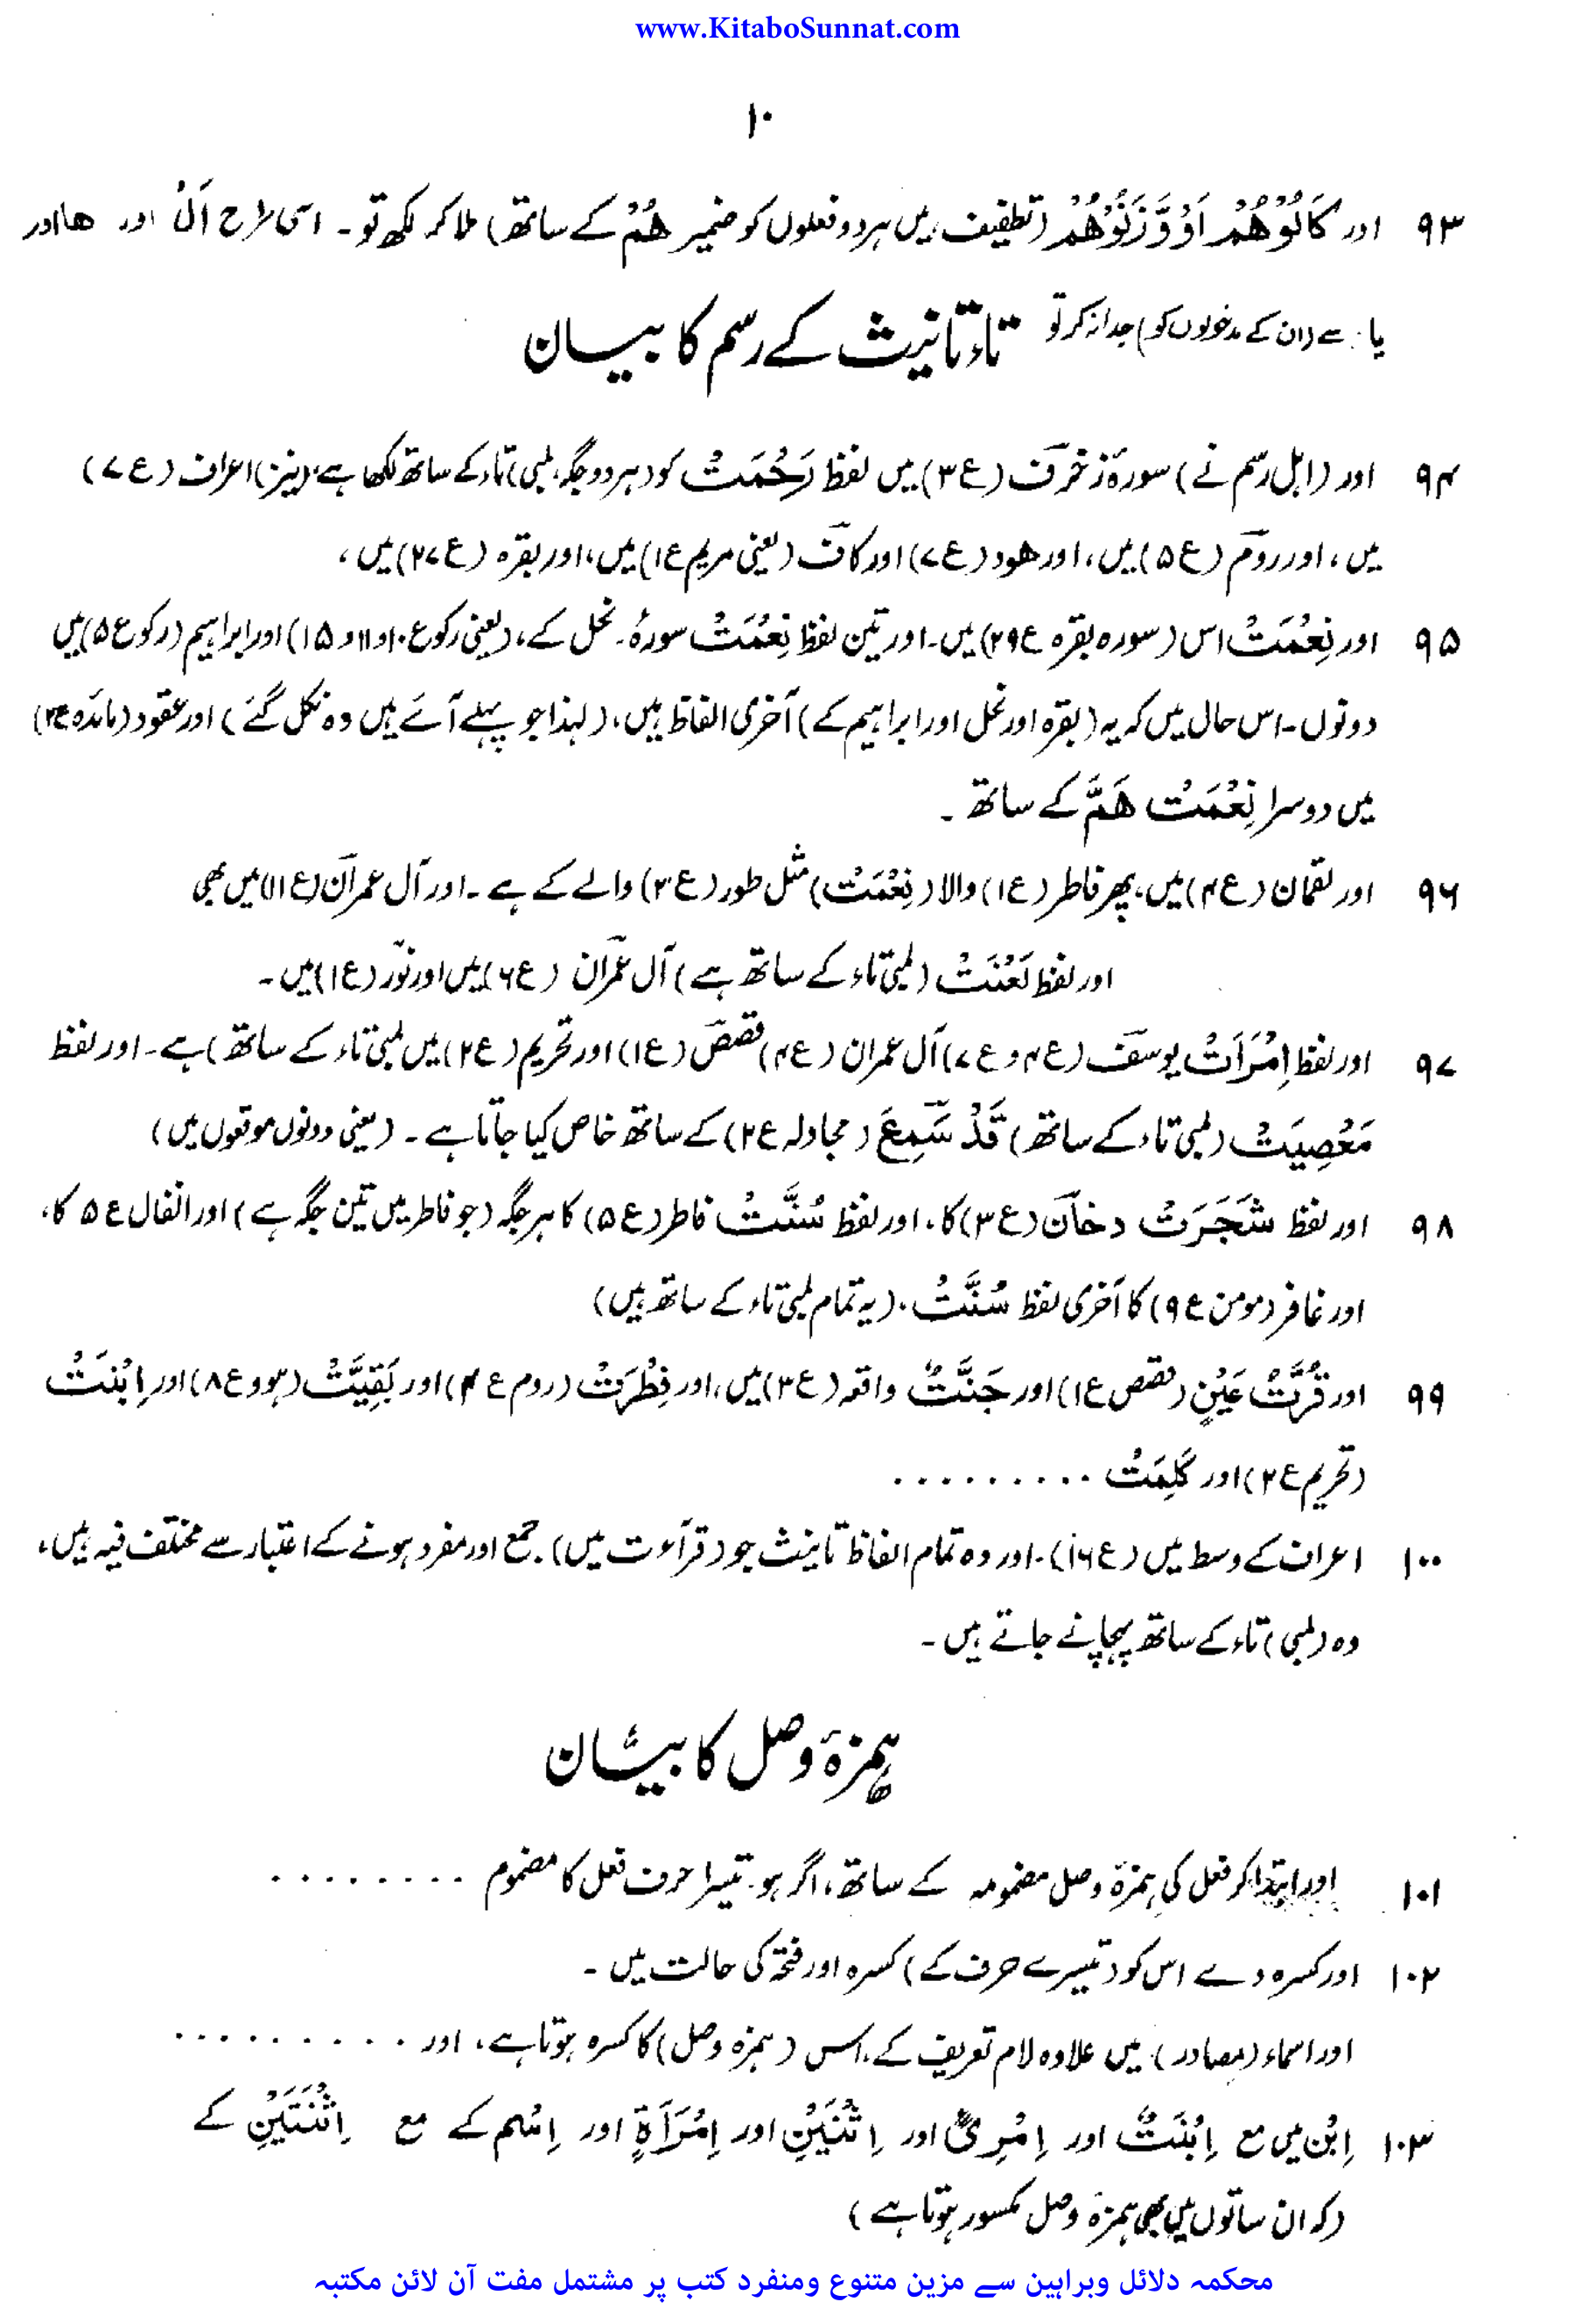 www.KitaboSunnat.com
۱۰
۹۳ اور کَالُوْهُمْ اَوْ وَّزَنُوْهُمْ (تطفیف میں ہر دو فعلوں کو ضمیر هُمْ کے ساتھ) ملا کر لکھ تو۔ اسی طرح اَلْ اور ها اور
یا سے (ان کے مدخولوں کو) جدا نہ کر تو
تاء تانیث کے رسم کا بیان
۹۴ اور (اہل رسم نے) سورۂ زخرف (ع۳) میں لفظ رَحْمَتْ کو (ہر دو جگہ، لمبی) تاء کے ساتھ لکھا ہے، (نیز) اعراف (ع۷)
میں، اور روم (ع۵) میں، اور هود (ع۷) اور کاف (یعنی مریم ع۱) میں، اور بقرہ (ع۲۷) میں،
۹۵ اور نِعْمَتْ اس (سورہ بقرہ ع۲۹) میں۔ اور تین لفظ نِعْمَتْ سورۂ نحل کے، (یعنی رکوع ۱۰ و ۱۱ و ۱۵) اور ابراہیم (رکوع ۵) میں
دونوں۔ اس حال میں کہ یہ (بقرہ اور نحل اور ابراہیم کے) آخری الفاظ ہیں، (لہذا جو پہلے آئے ہیں وہ نکل گئے) اور عقود (مائدہ ع۲)
میں دوسرا نِعْمَتْ هَمَّ کے ساتھ۔
۹۶ اور لقمان (ع۴) میں، پھر فاطر (ع۱) والا (نِعْمَتْ) مثل طور (ع۲) والے کے ہے۔ اور آل عمران (ع۱۱) میں بھی
اور لفظ لَعْنَتْ (لمبی تاء کے ساتھ ہے) آل عمران (ع۶) میں اور نور (ع۱) میں۔
۹۷ اور لفظ اِمْرَاَتْ یوسف (ع۴ و ع۷) آل عمران (ع۴) قصص (ع۱) اور تحریم (ع۲) میں لمبی تاء کے ساتھ) ہے۔ اور لفظ
مَعْصِیَتْ (لمبی تاء کے ساتھ) قَدْ سَمِعَ (مجادلہ ع۲) کے ساتھ خاص کیا جاتا ہے۔ (یعنی دونوں موقعوں میں)
۹۸ اور لفظ شَجَرَتْ دخان (ع۳) کا، اور لفظ سُنَّتْ فاطر (ع۵) کا ہر جگہ (جو فاطر میں تین جگہ ہے) اور انفال ع۵ کا،
اور غافر (مومن ع۹) کا آخری لفظ سُنَّتْ، (یہ تمام لمبی تاء کے ساتھ ہیں)
۹۹ اور قُرَّتُ عَیْنٍ (قصص ع۱) اور جَنَّتُ واقعہ (ع۳) میں، اور فِطْرَتْ (روم ع۴) اور بَقِیَّتْ (ہود ع۸) اور اِبْنَتْ
(تحریم ع۲) اور کَلِمَتْ . . . . . . . . .
۱۰۰ اعراف کے وسط میں (ع۱۶)۔ اور وہ تمام الفاظ تانیث جو (قرآءت میں) جمع اور مفرد ہونے کے اعتبار سے مختلف فیہ ہیں،
وہ (لمبی) تاء کے ساتھ پہچانے جاتے ہیں۔
ہمزۂ وصل کا بیان
۱۰۱ اور ابتدا کر فعل کی ہمزۂ وصل مضمومہ کے ساتھ، اگر ہو تیسرا حرف فعل کا مضموم . . . . . . . .
۱۰۲ اور کسرہ دے اس کو (تیسرے حرف کے) کسرہ اور فتحہ کی حالت میں۔
اور اسماء (مصادر) میں علاوہ لام تعریف کے، اس (ہمزہ وصل) کا کسرہ ہوتا ہے، اور . . . . . . . . .
۱۰۳ اِبْن میں مع اِبْنَتْ اور اِمْرِئٍ اور اِثْنَیْنِ اور اِمْرَاَةٍ اور اِسْم کے مع اِثْنَتَیْنِ کے
(کہ ان ساتوں میں بھی ہمزۂ وصل مکسور ہوتا ہے)
محکمہ دلائل وبراہین سے مزین متنوع ومنفرد کتب پر مشتمل مفت آن لائن مکتبہ